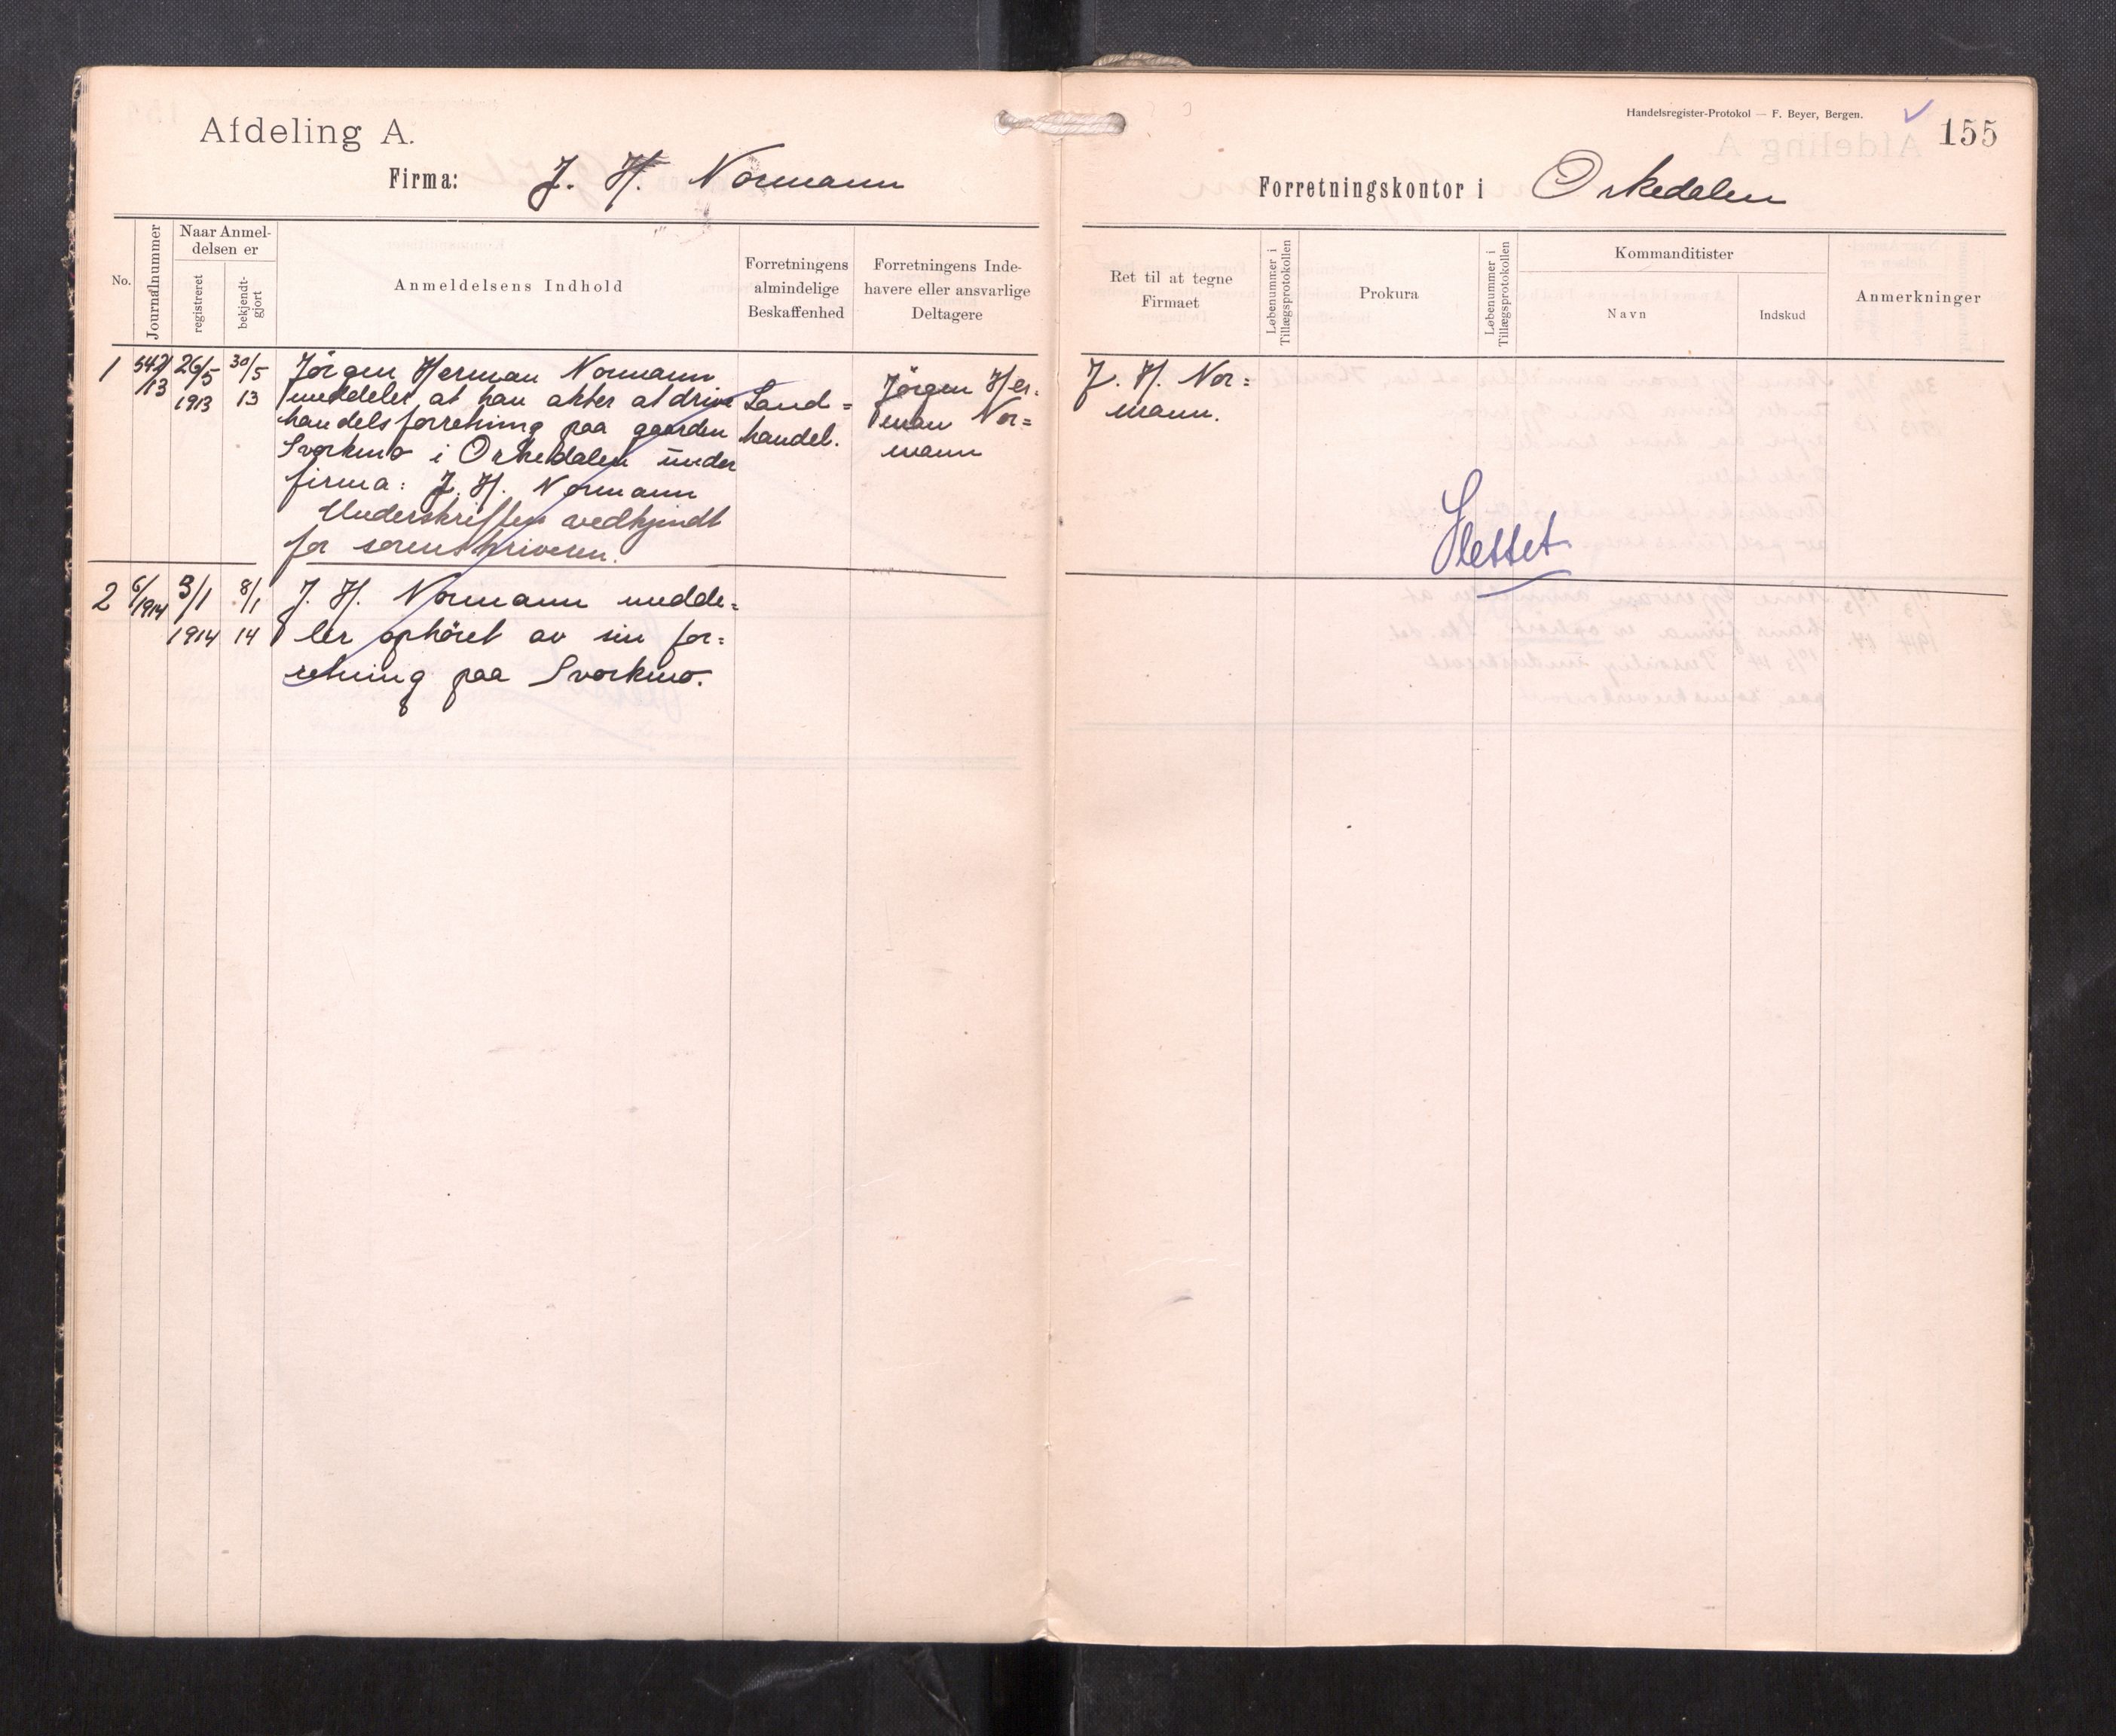 Afdeling A.
Firma: J. H. Normann
Handelsregister-Protokol — F. Beyer, Bergen.
155
Forretningskontor i Orkedalen
No.
Journalnummer
Naar Anmel-
delsen er
registreret
bekjendt-
gjort
Anmeldelsens Indhold
Forretningens
almindelige
Beskaffenhed
Forretningens Inde-
havere eller ansvarlige
Deltagere
Ret til at tegne
Firmaet
Løbenummer i
Tillægsprotokollen
Prokura
Løbenummer i
Tillægsprotokollen
Kommanditister
Navn
Indskud
Anmerkninger
1
542/13
26/5
1913
30/5
13
Jörgen Herman Normann
meddeler, at han akter at drive
handelsforretning paa gaarden
Svorkmo i Orkedalen under
firma: J. H. Normann
Underskriften vedkjendt
for sorenskriveren.
Land=
handel.
Jörgen Her=
man Nor=
mann
J. H. Nor=
mann.
Slettet
2
6/1914
3/1
1914
8/1
14
J. H. Normann medde=
ler ophöret av sin for=
retning paa Svorkmo.